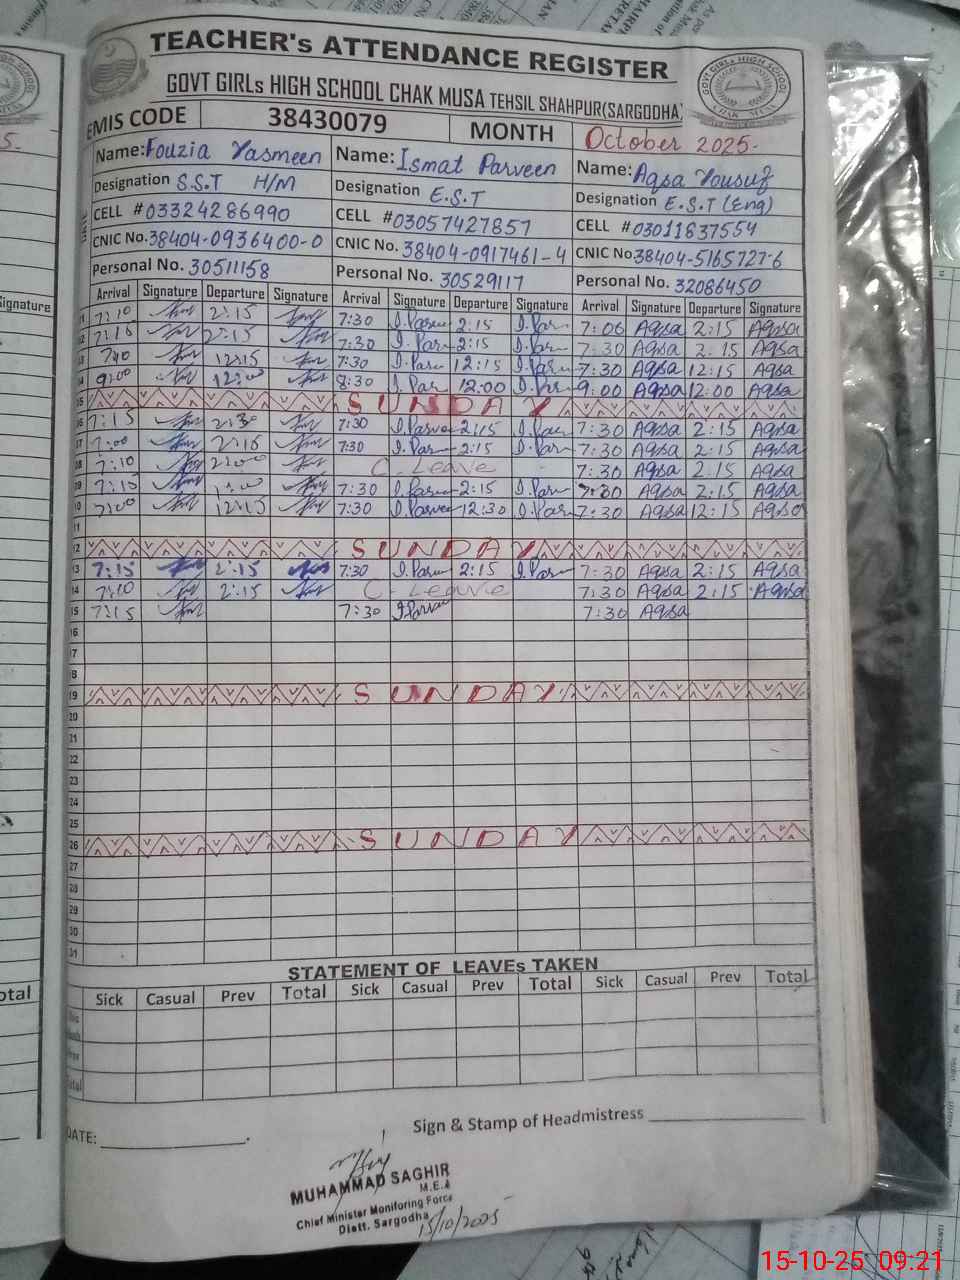 TEACHER's ATTENDANCE REGISTER
GOVT GIRLs HIGH SCHOOL CHAK MUSA TEHSIL SHAHPUR(SARGODHA)
EMIS CODE 38430079 MONTH October 2025-
Name: Fouzia Yasmeen Name: Ismat Parveen Name: Aqsa Yousuf
Designation S.S.T H/M Designation E.S.T Designation E.S.T (Eng)
CELL #03324286990 CELL #03057427857 CELL #03011837554
CNIC No. 38404-0936400-0 CNIC No. 38404-0917461-4 CNIC No. 38404-5165727-6
Personal No. 30511158 Personal No. 30529117 Personal No. 32086450
Arrival Signature Departure Signature Arrival Signature Departure Signature Arrival Signature Departure Signature
7:10 2:15 7:30 I.Parveen 2:15 I.Par 7:06 Aqsa 2:15 Aqsa
7:16 2:15 7:30 I.Par 2:15 I.Par 7:30 Aqsa 2:15 Aqsa
12:15 7:30 I.Par 12:15 I.Par 7:30 Aqsa 12:15 Aqsa
9:00 12:00 8:30 I.Par 12:00 I.Par 9:00 Aqsa 12:00 Aqsa
SUNDAY
7:15 2:30 7:30 I.Parveen 2:15 I.Par 7:30 Aqsa 2:15 Aqsa
7:00 2:16 7:30 I.Par 2:15 I.Par 7:30 Aqsa 2:15 Aqsa
7:10 2:00 C-Leave 7:30 Aqsa 2:15 Aqsa
7:15 7:30 I.Parveen 2:15 I.Par 7:30 Aqsa 2:15 Aqsa
10 7:00 12:15 7:30 I.Parveen 12:30 I.Par 7:30 Aqsa 12:15 Aqsa
11
12 SUNDAY
13 7:15 2:15 7:30 I.Par 2:15 I.Par 7:30 Aqsa 2:15 Aqsa
14 7:10 2:15 C-Leave 7:30 Aqsa 2:15 Aqsa
15 7:15 7:30 I.Parveen 7:30 Aqsa
16
17
18
19 SUNDAY
20
21
22
23
24
25
26 SUNDAY
27
28
29
30
31
STATEMENT OF LEAVEs TAKEN
Sick Casual Prev Total Sick Casual Prev Total Sick Casual Prev Total
Total
DATE: Sign & Stamp of Headmistress
MUHAMMAD SAGHIR
M.E.A
Chief Minister Monitoring Force
Distt. Sargodha 15/10/2025
15-10-25 09:21